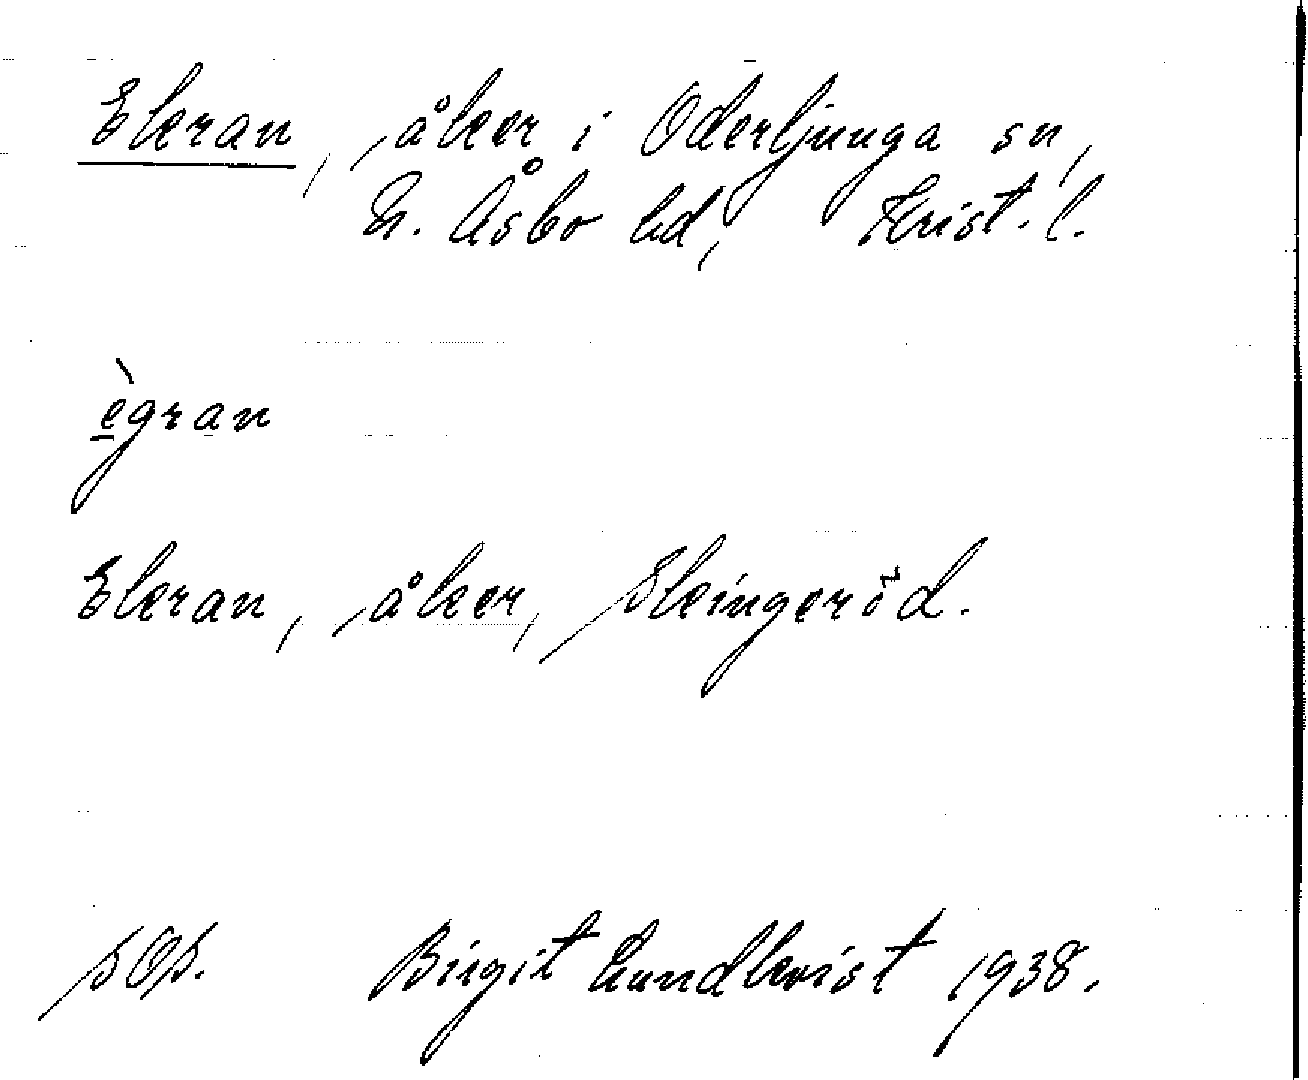 Ekran, åker i Oderljunga sn,
N. Åsbo hd, Krist. l.
ègran
Ekran, åker, Skingeröd.
SOS. Birgit Lundkvist 1938.